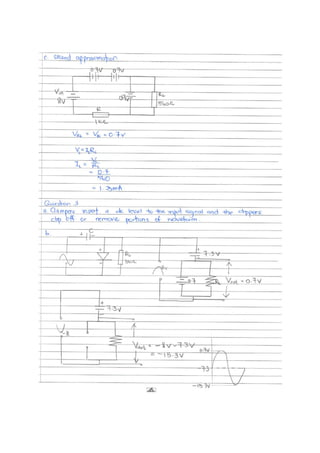 c. second approximation
0.7V 0.7V
Vdc
8V
0.7V
RL
560Ω
R
1kΩ
VRL = VL = 0.7V
VL = ILRL
IL = VL/RL
= 0.7
560
= 1.25mA
Question 3
a. Clampers insert a dc level to the input signal and the clippers
clip off or remove portions of
b.
+ C
RL
7.3V
0.7
RL
Vout = 0.7V
7.3V
-8
Vout = -8V-7.3V
= -15.3V
0.7V
-7.3
-15.3V